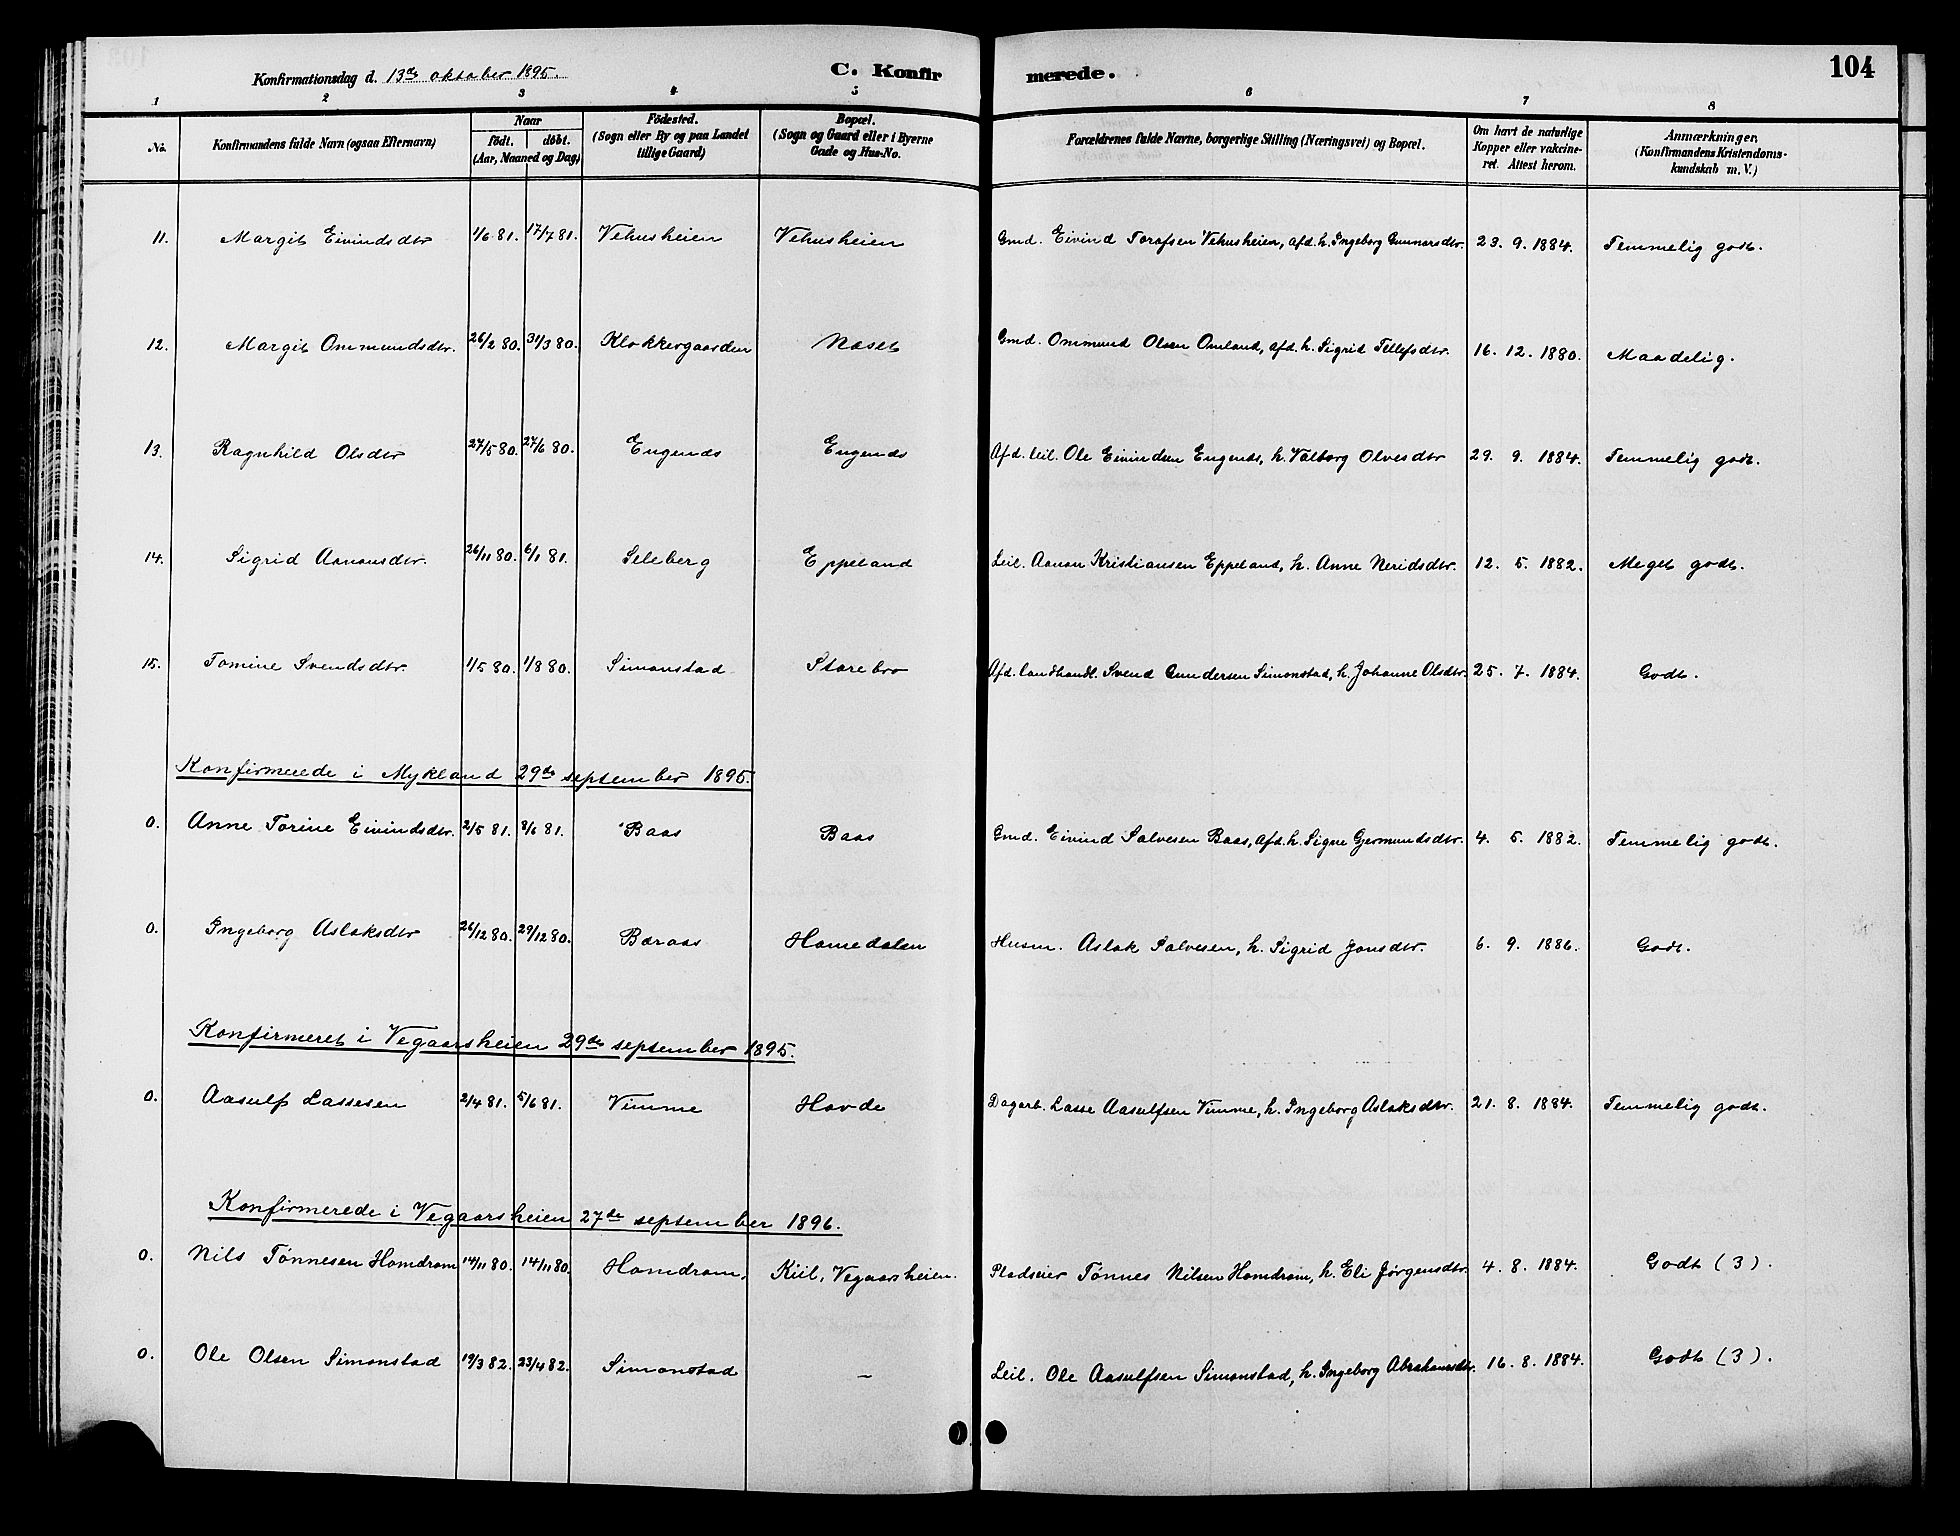 Konfirmationsdag d. 13de oktober 1895. C. Konfirmerede. 104
1 2 3 4 5 6 7 8
No. Konfirmandens fulde Navn (ogsaa Efternavn) Naar født. døbt. (Aar, Maaned og Dag) Födested. (Sogn eller By og paa Landet tillige Gaard) Bopæl. (Sogn og Gaard eller i Byerne Gade og Hus-No. Forældrenes fulde Navne, borgerlige Stilling (Næringsvei) og Bopæl. Om havt de naturlige Kopper eller vakcineret. Attest herom. Anmærkninger, (Konfirmandens Kristendomskundskab m. V.)
11. Margit Eivindsdtr 1/6 81. 17/7 81. Vehusheien Vehusheien Gmd. Eivind Torafsen Vehusheien, afd. h. Ingeborg Gunnarsdtr. 23. 9. 1884. Temmelig godt.
12. Margit Ommundsdtr. 26/2 80. 31/3 80. Klokkergaarden Næset Gmd. Ommund Olsen Omland, afd. h. Sigrid Tellefsdtr. 16. 12. 1880. Maadelig.
13. Ragnhild Olsdtr 27/5 80. 27/6 80. Engenes Engenes Afd. leil. Ole Eivindsen Engenes, h. Valborg Olvesdtr 29. 9. 1884. Temmelig godt.
14. Sigrid Aanonsdtr. 26/11 80. 6/1 81. Seleberg Eppeland Leil. Aanon Kristiansen Eppeland, h. Anne Neridsdtr. 12. 5. 1882. Meget godt.
15. Tomine Svendsdtr. 1/5 80. 1/8 80. Simonstad Storebro Afd. landhandl. Svend Gundersen Simonstad, h. Johanne Olsdtr. 25. 7. 1884. Godt.
Konfirmerede i Mykland 29de september 1895.
0. Anne Torine Eivindsdtr. 2/5 81. 8/6 81. Baas Baas Gmd. Eivind Salvesen Baas, afd. h. Signe Gjermundsdtr. 4. 5. 1882. Temmelig godt.
0. Ingeborg Aslaksdtr 26/12 80. 29/12 80. Bæraas Homedalen Husm. Aslak Salvesen, h. Sigrid Jonsdtr. 6. 9. 1886. Godt.
Konfirmeret i Vegaarsheien 29de september 1895.
0. Aasulf Lassesen 2/4 81. 5/6 81. Vimme Hovde Dagarb. Lasse Aasulfsen Vimme, h. Ingeborg Aslaksdtr. 21. 8. 1884. Temmelig godt.
Konfirmerede i Vegaarsheien 27de september 1896.
0. Nils Tønnesen Homdrom 14/11 80. 14/11 80. Homdrom. Kiil, Vegaarsheien. Pladseier Tønnes Nilsen Homdrom, h. Eli Jørgensdtr. 4. 8. 1884. Godt (3).
0. Ole Olsen Simonstad 19/3 82. 23/4 82. Simonstad — Leil. Ole Aasulfsen Simonstad, h. Ingeborg Abrahamsdtr. 16. 8. 1884. Godt (3).